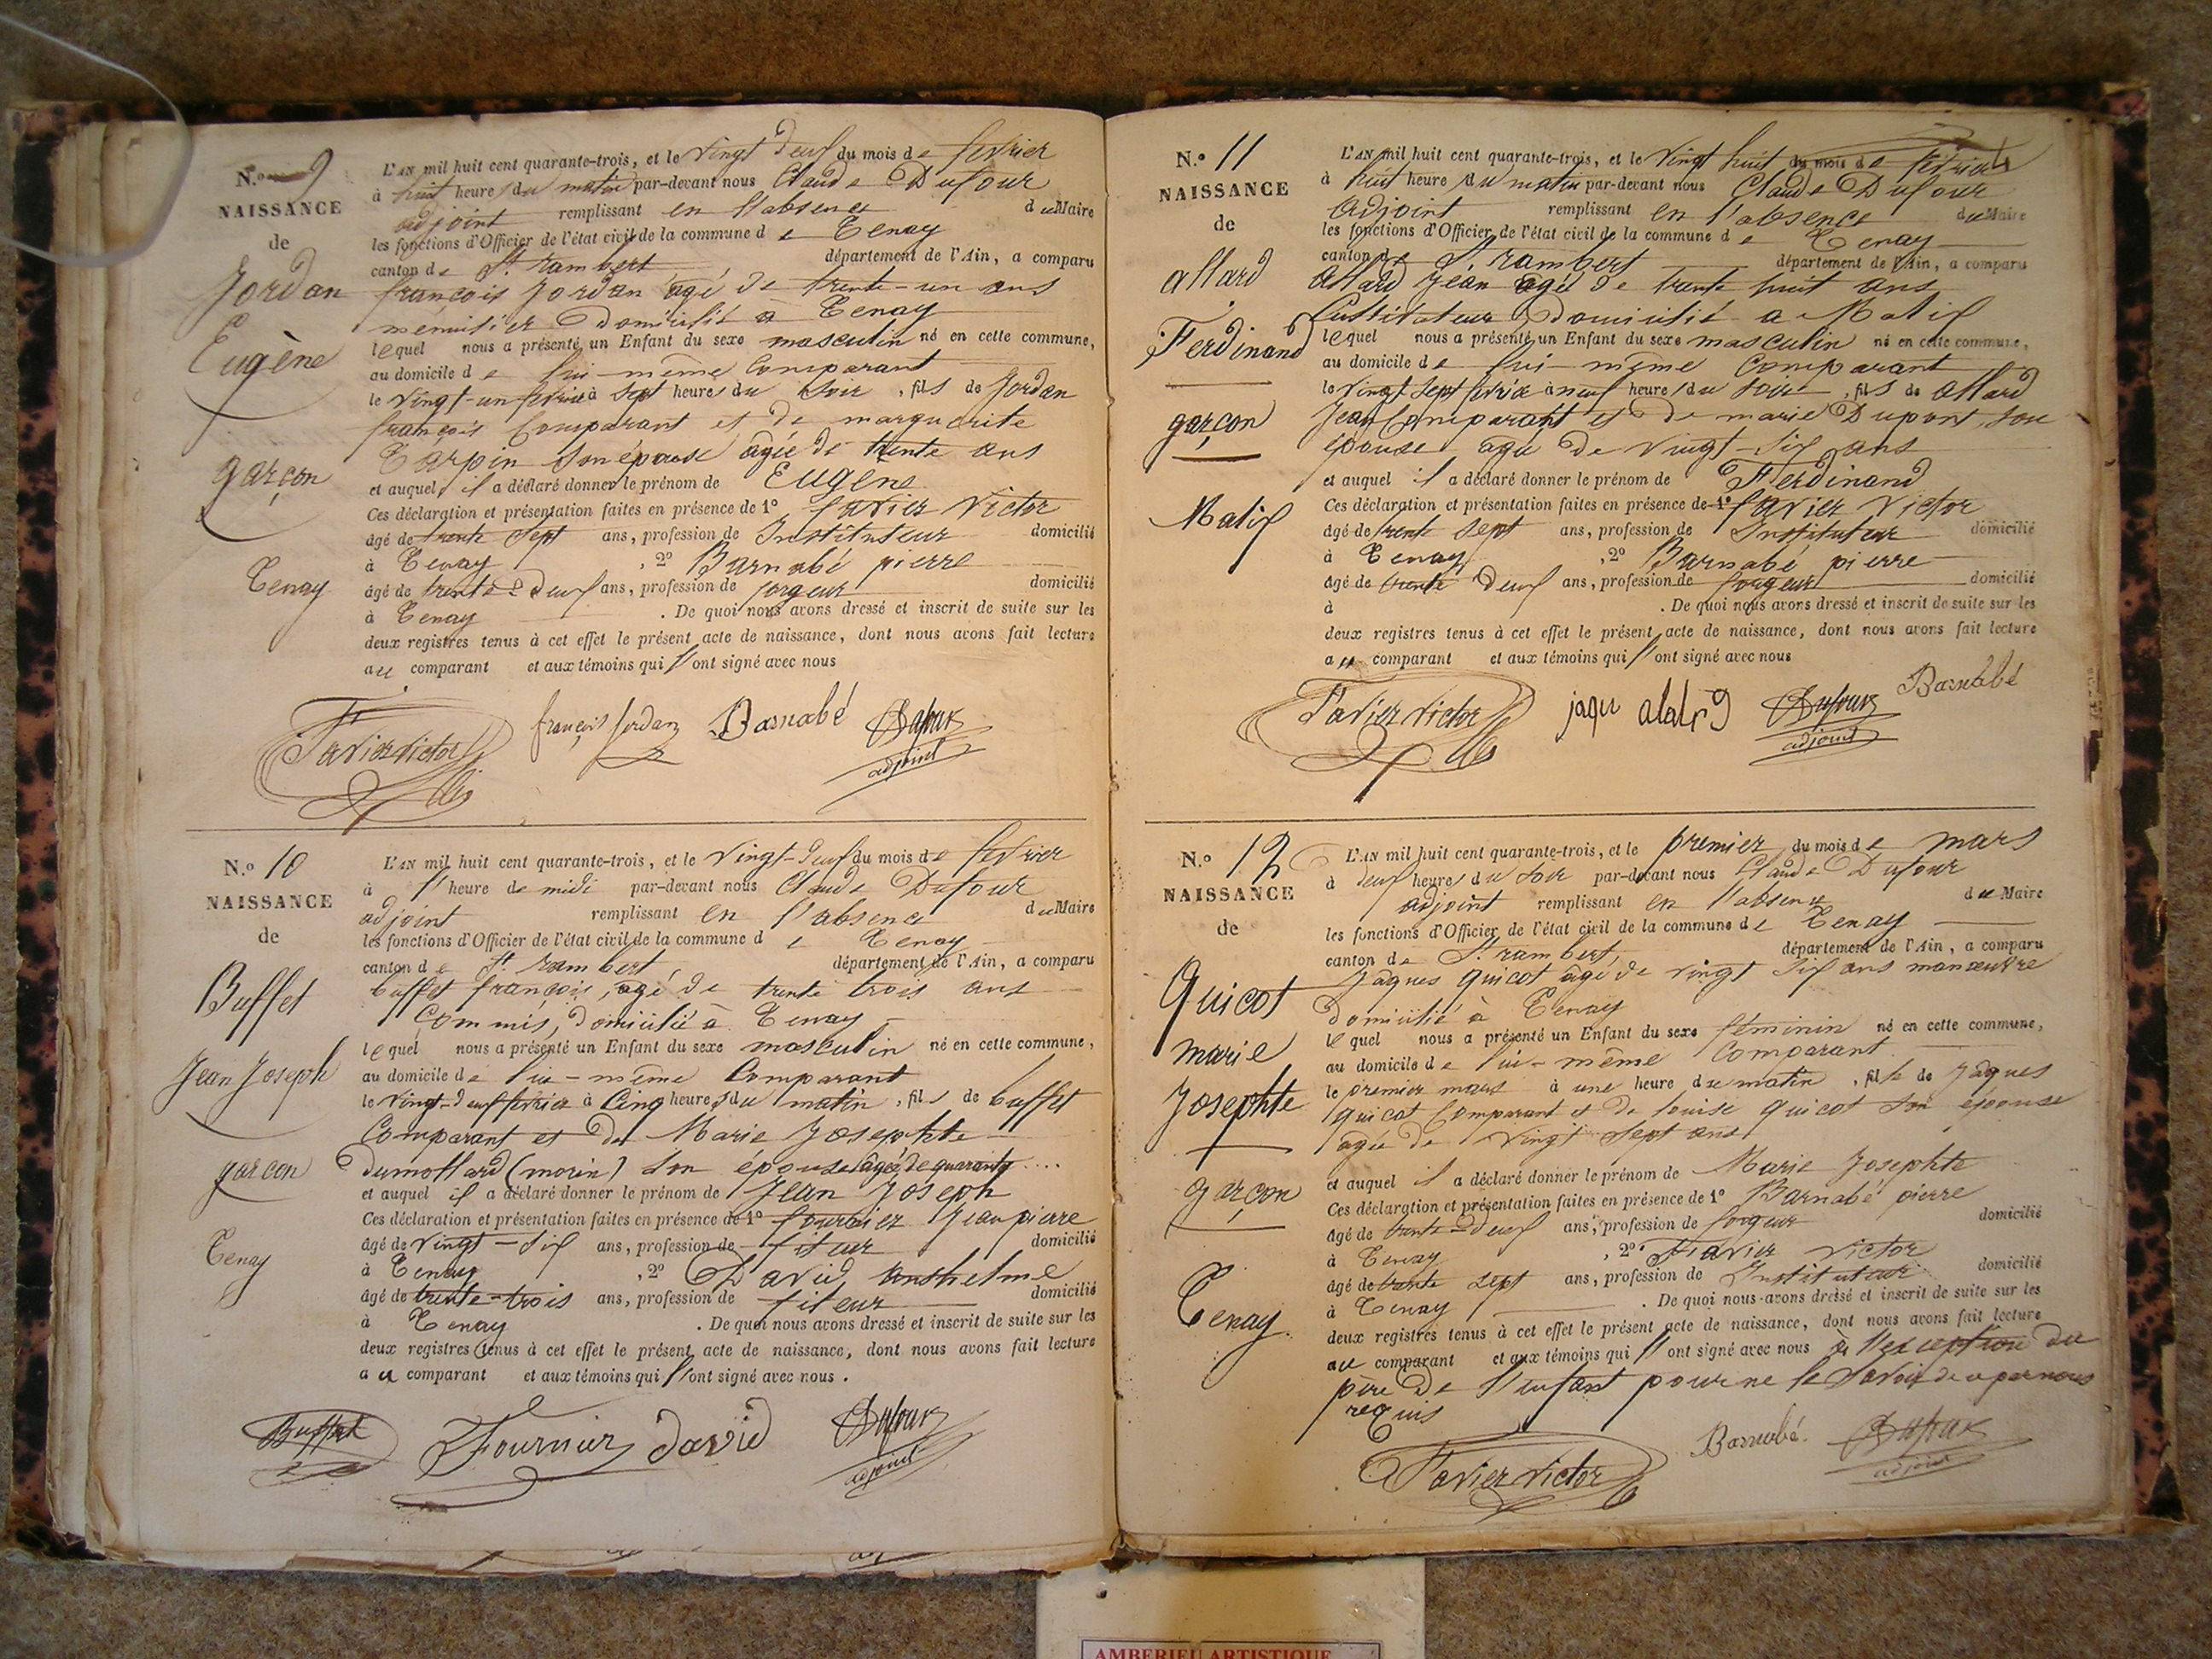 N.º 9
NAISSANCE
de
Jordan
Eugène
garçon
Tenay
L'AN mil huit cent quarante-trois, et le vingt deux du mois de fevrier
à huit heures du matin par-devant nous Claude Dufour
adjoint remplissant en l'absence du Maire
les fonctions d'Officier de l'état civil de la commune de Tenay
canton de St. rambert département de l'Ain, a comparu
françois Jordan âgé de trente-un ans
menuisier domicilié à Tenay
lequel nous a présenté un Enfant du sexe masculin né en cette commune,
au domicile de lui-même Comparant
le vingt-un fevrier à sept heures du soir, fils de Jordan
françois Comparant et de marguerite
Tarpin son épouse agée de trente ans
et auquel il a déclaré donner le prénom de Eugène
Ces déclaration et présentation faites en présence de 1º favier Victor
âgé de trente sept ans, profession de Instituteur domicilié
à Tenay, 2º Barnabé pierre
âgé de trente-deux ans, profession de forgeur domicilié
à Tenay. De quoi nous avons dressé et inscrit de suite sur les
deux registres tenus à cet effet le présent acte de naissance, dont nous avons fait lecture
au comparant et aux témoins qui l'ont signé avec nous
Favier victor françois Jordan Barnabé Dufour
adjoint
N.º 10
NAISSANCE
de
Buffet
Jean Joseph
garcon
Tenay
L'AN mil huit cent quarante-trois, et le vingt-deux du mois de fevrier
à l'heure de midi par-devant nous Claude Dufour
adjoint remplissant en l'absence du Maire
les fonctions d'Officier de l'état civil de la commune de Tenay
canton de St. rambert département de l'Ain, a comparu
buffet françois, agé de trente trois ans
Commis, domicilié à Tenay
lequel nous a présenté un Enfant du sexe masculin né en cette commune,
au domicile de lui-même Comparant
le vingt-deux fevrier à Cinq heures du matin, fils de buffet
Comparant et de Marie Josephte
dumollard (morin) son épouse âgée de quarante....
et auquel il a déclaré donner le prénom de Jean Joseph
Ces déclaration et présentation faites en présence de 1º fournier Jean pierre
âgé de vingt-six ans, profession de fileur domicilié
à Tenay, 2º David anthelme
âgé de trente-trois ans, profession de fileur domicilié
à Tenay. De quoi nous avons dressé et inscrit de suite sur les
deux registres tenus à cet effet le présent acte de naissance, dont nous avons fait lecture
au comparant et aux témoins qui l'ont signé avec nous.
Buffet Fournier david Dufour
adjoint
N.º 11
NAISSANCE
de
allard
Ferdinand
garçon
Malix
L'AN mil huit cent quarante-trois, et le vingt huit du mois de fevrier
à huit heures du matin par-devant nous Claude Dufour
adjoint remplissant en l'absence du Maire
les fonctions d'Officier de l'état civil de la commune de Tenay
canton de St. rambert département de l'Ain, a comparu
allard Jean agée de trente huit ans
Cultivateur domicilié a Malix
lequel nous a présenté un Enfant du sexe masculin né en cette commune,
au domicile de lui-même Comparant
le vingt sept fevrier à neuf heures du soir, fils de allard
Jean Comparant et de marie Dupont, son
épouse agée de vingt-six ans
et auquel il a déclaré donner le prénom de Ferdinand
Ces déclaration et présentation faites en présence de 1º favier Victor
âgé de trente sept ans, profession de Instituteur domicilié
à Tenay, 2º Barnabé pierre
âgé de trente deux ans, profession de forgeur domicilié
à . De quoi nous avons dressé et inscrit de suite sur les
deux registres tenus à cet effet le présent acte de naissance, dont nous avons fait lecture
au comparant et aux témoins qui l'ont signé avec nous
Favier victor Dufour Barnabé
adjoint
N.º 12
NAISSANCE
de
Quicot
marie
Josephte
garçon
Tenay
L'AN mil huit cent quarante-trois, et le premier du mois de mars
à deux heures du soir par-devant nous Claude Dufour
adjoint remplissant en l'absence du Maire
les fonctions d'Officier de l'état civil de la commune de Tenay
canton de St. rambert, département de l'Ain, a comparu
Jâques quicot âgé de vingt six ans manœuvre
domicilié à Tenay
lequel nous a présenté un Enfant du sexe féminin né en cette commune,
au domicile de lui-même Comparant
le premier mars à une heure du matin, fille de Jâques
quicot Comparant et de louise quicot son épouse
agée de vingt sept ans
et auquel il a déclaré donner le prénom de Marie Josephte
Ces déclaration et présentation faites en présence de 1º Barnabé pierre
âgé de trente-deux ans, profession de forgeur domicilié
à Tenay, 2º Favier victor
âgé de trente sept ans, profession de Instituteur domicilié
à Tenay. De quoi nous avons dressé et inscrit de suite sur les
deux registres tenus à cet effet le présent acte de naissance, dont nous avons fait lecture
au comparant et aux témoins qui l'ont signé avec nous à l'exception du
père de l'enfant pour ne le savoir de ce par nous
requis
Favier victor Barnabé. Dufour
adjoint
AMBERIEU ARTISTIQUE